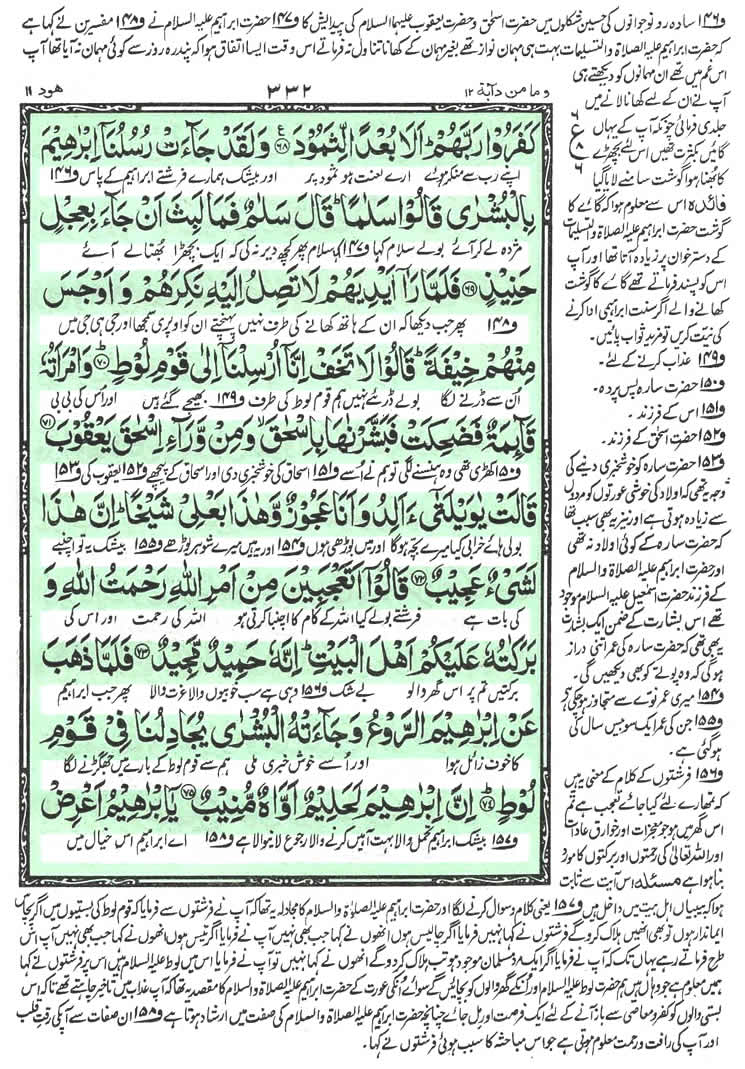 و۱۴۶ سادہ رو نوجوانوں کی حسین شکلوں میں حضرت اسحٰق و حضرت یعقوب علیہما السلام کی پیدائش کا و۱۴۷ حضرت ابراہیم علیہ السلام نے و۱۴۸ مفسرین نے کہا ہے
کہ حضرت ابراہیم علیہ الصلاۃ والتسلیمات بہت ہی مہمان نواز تھے بغیر مہمان کے کھانا تناول نہ فرماتے اس وقت ایسا اتفاق ہوا کہ پندرہ روز سے کوئی مہمان نہ آیا تھا آپ
وما من دآبة ۱۲
۳۳۲
ھود ۱۱
كَفَرُوْا رَبَّهُمْ ؕ اَلَا بُعْدًا لِّثَمُوْدَ ﴿۶۸﴾ وَلَقَدْ جَآءَتْ رُسُلُنَاۤ اِبْرٰهِيْمَ
اپنے رب سے منکر ہوئے ارے لعنت ہو ثمود پر اور بیشک ہمارے فرشتے ابراہیم کے پاس و۱۴۶
بِالْبُشْرٰى قَالُوْا سَلٰمًا ؕ قَالَ سَلٰمٌ فَمَا لَبِثَ اَنْ جَآءَ بِعِجْلٍ
مژدہ لے کر آئے بولے سلام کہا و۱۴۷ کہا سلام پھر کچھ دیر نہ کی کہ ایک بچھڑا بھنا لے آئے
حَنِيْذٍ ﴿۶۹﴾ فَلَمَّا رَاٰۤ اَيْدِيَهُمْ لَا تَصِلُ اِلَيْهِ نَكِرَهُمْ وَاَوْجَسَ
و۱۴۸ پھر جب دیکھا کہ ان کے ہاتھ کھانے کی طرف نہیں پہنچتے ان کو اوپری سمجھا اور جی ہی جی میں
مِنْهُمْ خِيْفَةً ؕ قَالُوْا لَا تَخَفْ اِنَّاۤ اُرْسِلْنَاۤ اِلٰى قَوْمِ لُوْطٍ ﴿۷۰﴾ وَامْرَاَتُهٗ
اُن سے ڈرنے لگا بولے ڈرئیے نہیں ہم قوم لوط کی طرف و۱۴۹ بھیجے گئے ہیں اور اُس کی بی بی
قَآئِمَةٌ فَضَحِكَتْ فَبَشَّرْنٰهَا بِاِسْحٰقَ ۙ وَمِنْ وَّرَآءِ اِسْحٰقَ يَعْقُوْبَ ﴿۷۱﴾
و۱۵۰ کھڑی تھی وہ ہنسنے لگی تو ہم نے اُسے و۱۵۱ اسحاق کی خوشخبری دی اور اسحاق کے پیچھے و۱۵۲ یعقوب کی و۱۵۳
قَالَتْ يٰوَيْلَتٰۤى ءَاَلِدُ وَاَنَا عَجُوْزٌ وَّهٰذَا بَعْلِىْ شَيْخًا ؕ اِنَّ هٰذَا
بولی ہائے خرابی کیا میرے بچہ ہوگا اور میں بوڑھی ہوں و۱۵۴ اور یہ ہیں میرے شوہر بوڑھے و۱۵۵ بیشک یہ تو اچنبھے
لَشَىْءٌ عَجِيْبٌ ﴿۷۲﴾ قَالُوْۤا اَتَعْجَبِيْنَ مِنْ اَمْرِ اللّٰهِ رَحْمَتُ اللّٰهِ وَ
کی بات ہے فرشتے بولے کیا اللہ کے کام کا اچنبا کرتی ہو اللہ کی رحمت اور اس کی
بَرَكٰتُهٗ عَلَيْكُمْ اَهْلَ الْبَيْتِ ؕ اِنَّهٗ حَمِيْدٌ مَّجِيْدٌ ﴿۷۳﴾ فَلَمَّا ذَهَبَ
برکتیں تم پر اس گھر والو بے شک و۱۵۶ وہی ہے سب خوبیوں والا عزت والا پھر جب ابراہیم
عَنْ اِبْرٰهِيْمَ الرَّوْعُ وَجَآءَتْهُ الْبُشْرٰى يُجَادِلُنَا فِىْ قَوْمِ
کا خوف زائل ہوا اور اُسے خوش خبری ملی ہم سے قوم لوط کے بارے میں جھگڑنے لگا
لُوْطٍ ﴿۷۴﴾ اِنَّ اِبْرٰهِيْمَ لَحَلِيْمٌ اَوَّاهٌ مُّنِيْبٌ ﴿۷۵﴾ يٰۤاِبْرٰهِيْمُ اَعْرِضْ
و۱۵۷ بیشک ابراہیم تحمل والا بہت آہیں کرنے والا رجوع لانیوالا ہے و۱۵۸ اے ابراہیم اس خیال میں
اس غم میں تھے ان مہمانوں کو دیکھتے ہی
آپ نے ان کے لئے کھانا لانے میں
جلدی فرمائی چونکہ آپ کے یہاں
گائیں بکثرت تھیں اس لئے بچھڑے
کا بھنا ہوا گوشت سامنے لایا گیا
فائدہ اس سے معلوم ہوا کہ گائے کا
گوشت حضرت ابراہیم علیہ الصلاۃ والتسلیمات
کے دسترخوان پر زیادہ آتا تھا اور آپ
اس کو پسند فرماتے تھے گائے کا گوشت
کھانے والے اگر سنت ابراہیمی ادا کرنے
کی نیت کریں تو مزید ثواب پائیں۔
و۱۴۹ عذاب کرنے کے لئے۔
و۱۵۰ حضرت سارہ پس پردہ۔
و۱۵۱ اس کے فرزند۔
و۱۵۲ حضرت اسحٰق کے فرزند۔
و۱۵۳ حضرت سارہ کو خوشخبری دینے کی
وجہ یہ تھی کہ اولاد کی خوشی عورتوں کو مردوں
سے زیادہ ہوتی ہے اور نیز یہ بھی سبب تھا
کہ حضرت سارہ کے کوئی اولاد نہ تھی
اور حضرت ابراہیم علیہ الصلاۃ والسلام
کے فرزند حضرت اسمٰعیل علیہ السلام موجود
تھے اس بشارت کے ضمن میں ایک بشارت
یہ بھی تھی کہ حضرت سارہ کی عمر اتنی دراز
ہوگی کہ وہ پوتے کو بھی دیکھیں گی۔
و۱۵۴ میری عمر نوے سے متجاوز ہو چکی ہے
و۱۵۵ جن کی عمر ایک سو بیس سال کی
ہوگئی ہے۔
و۱۵۶ فرشتوں کے کلام کے معنی یہ ہیں
کہ تمھارے لئے کیا جائے تعجب ہے تم
اس گھر میں ہو جو معجزات اور خوارق عادات
اور اللہ تعالیٰ کی رحمتوں اور برکتوں کا مورد
بنا ہوا ہے مسئلہ اس آیت سے ثابت
ہوا کہ بیبیاں اہل بیت میں داخل ہیں و۱۵۷ یعنی کلام و سوال کرنے لگا اور حضرت ابراہیم علیہ الصلاۃ والسلام کا مجادلہ یہ تھا کہ آپ نے فرشتوں سے فرمایا کہ قوم لوط کی بستیوں میں اگر پچاس
ایماندار ہوں تو بھی انھیں ہلاک کرو گے فرشتوں نے کہا نہیں فرمایا اگر چالیس ہوں انھوں نے کہا جب بھی نہیں آپ نے فرمایا اگر تیس ہوں انھوں نے کہا جب بھی نہیں آپ اس
طرح فرماتے رہے یہاں تک کہ آپ نے فرمایا اگر ایک مرد مسلمان موجود ہو تب ہلاک کردو گے انھوں نے کہا نہیں تو آپ نے فرمایا اس میں لوط علیہ السلام ہیں اس پر فرشتوں نے کہا
ہمیں معلوم ہے جو وہاں ہیں ہم حضرت لوط علیہ السلام اور اُنکے گھر والوں کو بچائیں گے سوائے اُنکی عورت کے حضرت ابراہیم علیہ الصلاۃ والسلام کا مقصد یہ تھا کہ آپ عذاب میں تاخیر چاہتے تھے تاکہ اس
بستی والوں کو کفر و معاصی سے باز آنے کے لئے ایک فرصت اور مل جائے چنانچہ حضرت ابراہیم علیہ الصلاۃ والسلام کی صفت میں ارشاد ہوتا ہے و۱۵۸ ان صفات سے آپکی رقت قلب
اور آپ کی رافت و رحمت معلوم ہوتی ہے جو اس مباحثہ کا سبب ہوئی فرشتوں نے کہا۔